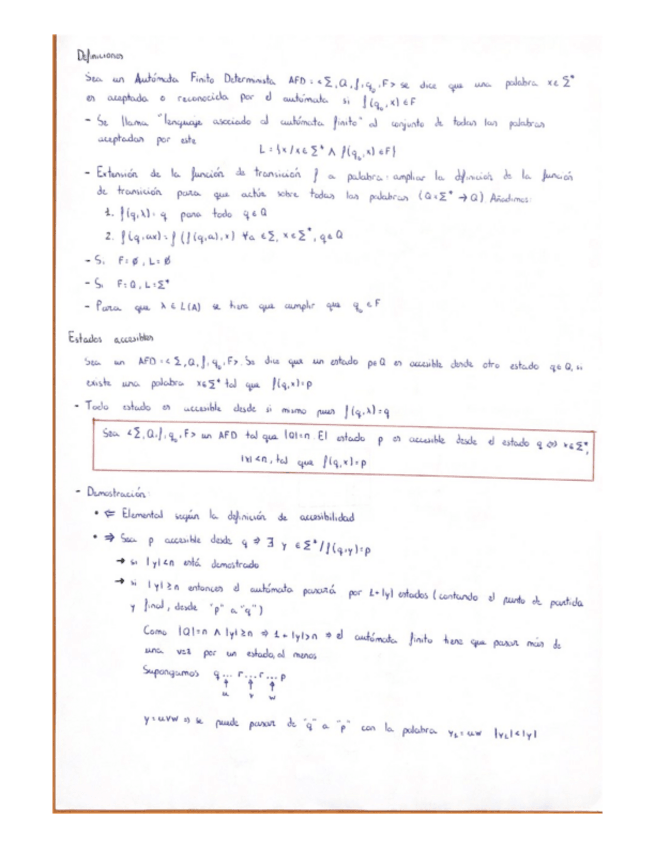 Definiciones
Sea un Autómata Finito Determinista AFD = <Σ, Q, f, q₀, F> se dice que una palabra x ∈ Σ*
es aceptada o reconocida por el autómata si f(q₀, x) ∈ F
- Se llama "lenguaje asociado al autómata finito" al conjunto de todas las palabras
aceptadas por este
L = {x / x ∈ Σ* ∧ f(q₀, x) ∈ F}
- Extensión de la función de transición f a palabra: ampliar la definición de la función
de transición para que actúe sobre todas las palabras (Q×Σ* → Q). Añadimos:
1. f(q, λ) = q para todo q ∈ Q
2. f(q, ax) = f(f(q, a), x) ∀a ∈ Σ, x ∈ Σ*, q ∈ Q
- Si F = ∅, L = ∅
- Si F = Q, L = Σ*
- Para que λ ∈ L(A) se tiene que cumplir que q₀ ∈ F
Estados accesibles
Sea un AFD = <Σ, Q, f, q₀, F>. Se dice que un estado p ∈ Q es accesible desde otro estado q ∈ Q, si
existe una palabra x ∈ Σ* tal que f(q, x) = p
- Todo estado es accesible desde si mismo pues f(q, λ) = q
Sea <Σ, Q, f, q₀, F> un AFD tal que |Q| = n. El estado p es accesible desde el estado q ⇔ x ∈ Σ*,
|x| < n, tal que f(q, x) = p
- Demostración:
• ⇐ Elemental según la definición de accesibilidad
• ⇒ Sea p accesible desde q ⇒ ∃ y ∈ Σ* / f(q, y) = p
→ si |y| < n está demostrado
→ si |y| ≥ n entonces el autómata pasará por 1+|y| estados (contando el punto de partida
y final, desde "p" a "q")
Como |Q| = n ∧ |y| ≥ n ⇒ 1+|y| > n ⇒ el autómata finito tiene que pasar más de
una vez por un estado, al menos
Supongamos q ... r ... r ... p
↑ ↑ ↑
u v w
y = uvw ⇒ se puede pasar de "q" a "p" con la palabra y₁ = uw |y₁| < |y|